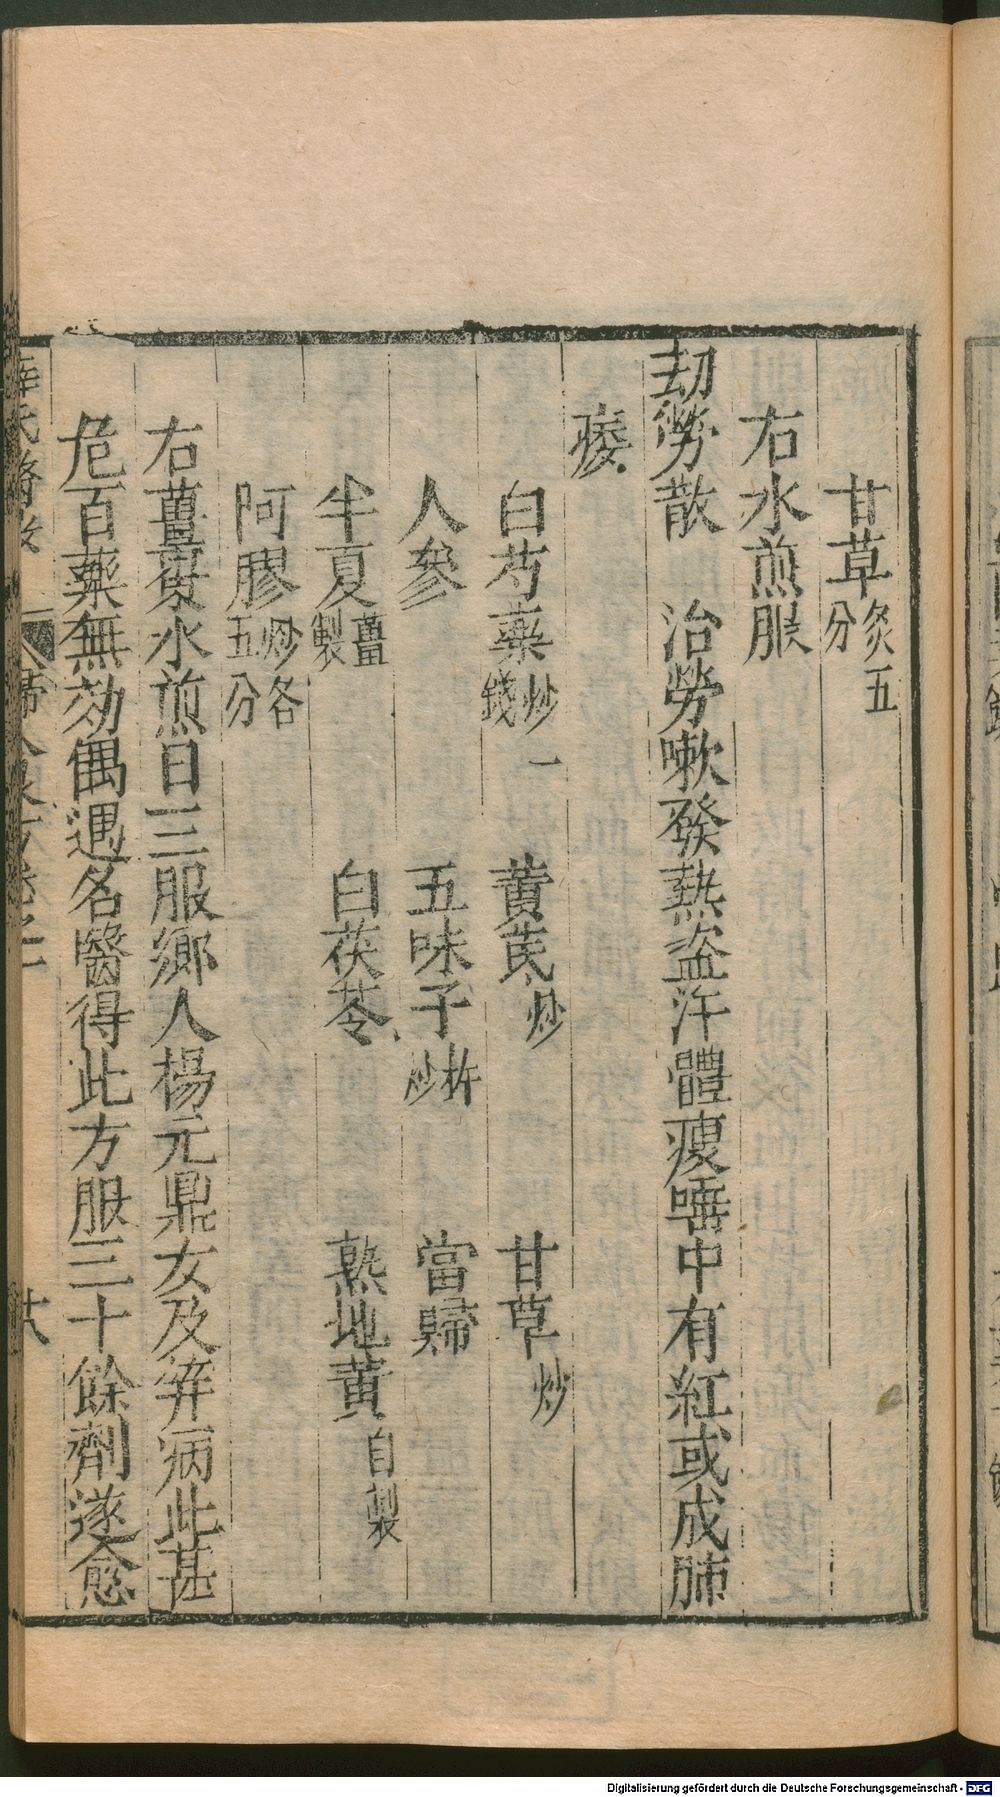 甘草炙五分
右水煎服
劫勞散　治勞嗽發熱盜汗體瘦唾中有紅或成肺
痿
白芍藥炒一錢　黄芪炒　甘草炒
人參　五味子杵炒　當歸
半夏薑製　白茯苓　熟地黄自製
阿膠炒各五分
右薑棗水煎日三服鄉人楊元鼎女及笄病此甚
危百藥無効偶遇名醫得此方服三十餘劑遂愈
薛氏醫案　婦人良方卷之二　廿八
Digitalisierung gefördert durch die Deutsche Forschungsgemeinschaft - DFG